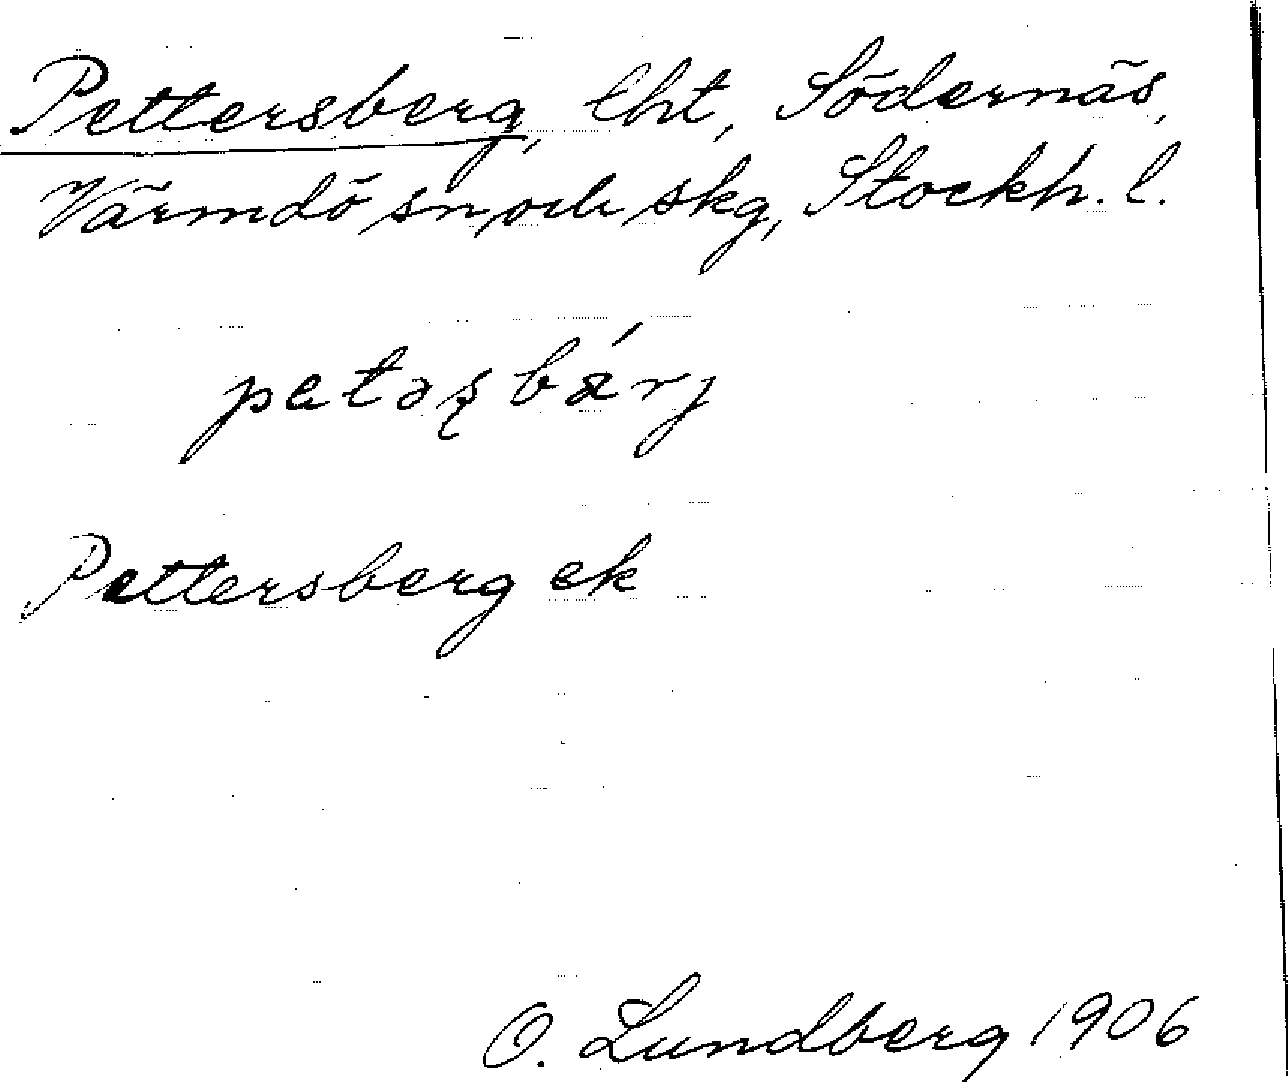 Pettersberg, lht, Södernäs,
Värmdö sn, och skg, Stockh. l.
petəʂbárj
Pettersberg ek
O. Lundberg 1906